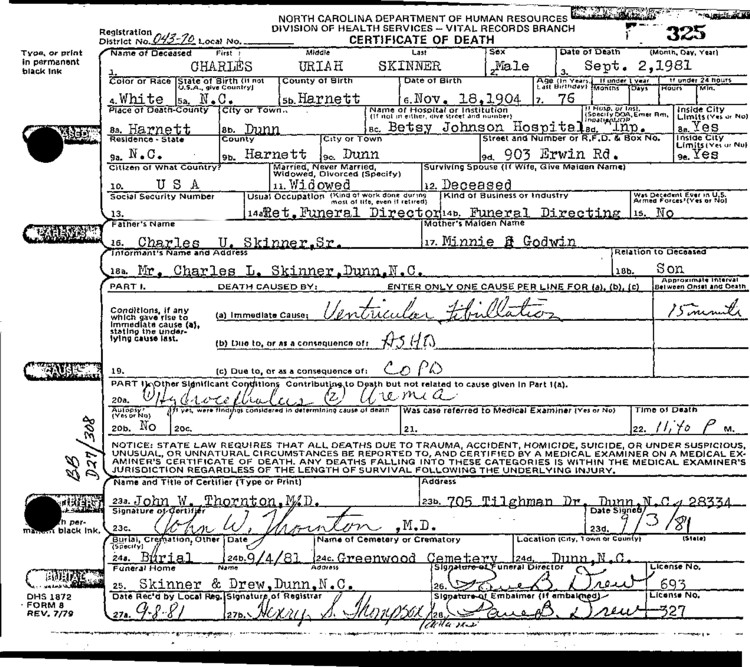 NORTH CAROLINA DEPARTMENT OF HUMAN RESOURCES
DIVISION OF HEALTH SERVICES – VITAL RECORDS BRANCH
CERTIFICATE OF DEATH
325
Registration
District No. 043-70 Local No.
Type, or print
in permanent
black ink
Name of Deceased First Middle Last Sex Date of Death (Month, Day, Year)
1. CHARLES URIAH SKINNER 2. Male 3. Sept. 2,1981
Color or Race State of Birth (If not U.S.A., give Country) County of Birth Date of Birth Age (In Years Last Birthday) If under 1 year Months Days If under 24 hours Hours Min.
4. White 5a. N.C. 5b. Harnett 6. Nov. 18,1904 7. 76
Place of Death-County City or Town Name of Hospital or Institution (If not in either, give street and number) If Hosp. or Inst. (Specify DOA, Emer Rm, Inpatient,OP Inside City Limits (Yes or No)
8a. Harnett 8b. Dunn 8c. Betsy Johnson Hospital 8d. Inp. 8e. Yes
Residence - State County City or Town Street and Number or R.F.D. & Box No. Inside City Limits (Yes or No)
9a. N.C. 9b. Harnett 9c. Dunn 9d. 903 Erwin Rd. 9e. Yes
Citizen of What Country? Married, Never Married, Widowed, Divorced (Specify) Surviving Spouse (If Wife, Give Maiden Name)
10. U S A 11. Widowed 12. Deceased
Social Security Number Usual Occupation (Kind of work done during most of life, even if retired) Kind of Business or Industry Was Decedent Ever in U.S. Armed Forces? (Yes or No)
13. 14a Ret. Funeral Director 14b. Funeral Directing 15. No
Father's Name Mother's Maiden Name
16. Charles U. Skinner,Sr. 17. Minnie Godwin
Informant's Name and Address Relation to Deceased
18a. Mr. Charles L. Skinner,Dunn,N.C. 18b. Son
PART I. DEATH CAUSED BY: ENTER ONLY ONE CAUSE PER LINE FOR (a), (b), (c) Approximate Interval Between Onset and Death
Conditions, if any
which gave rise to
immediate cause (a),
stating the under-
lying cause last.
(a) Immediate Cause: Ventricular Fibrillation 15 minute
(b) Due to, or as a consequence of: ASHD
19. (c) Due to, or as a consequence of: COPD
CAUSE
PART II. Other Significant Conditions Contributing to Death but not related to cause given in Part 1(a).
20a. (1) Hydrocephalus (2) Uremia
Autopsy? (Yes or No) If yes, were findings considered in determining cause of death Was case referred to Medical Examiner (Yes or No) Time of Death
20b. No 20c. 21. 22. 11:40 P M.
BB
D27/308
NOTICE: STATE LAW REQUIRES THAT ALL DEATHS DUE TO TRAUMA, ACCIDENT, HOMICIDE, SUICIDE, OR UNDER SUSPICIOUS,
UNUSUAL, OR UNNATURAL CIRCUMSTANCES BE REPORTED TO, AND CERTIFIED BY A MEDICAL EXAMINER ON A MEDICAL EX-
AMINER'S CERTIFICATE OF DEATH. ANY DEATHS FALLING INTO THESE CATEGORIES IS WITHIN THE MEDICAL EXAMINER'S
JURISDICTION REGARDLESS OF THE LENGTH OF SURVIVAL FOLLOWING THE UNDERLYING INJURY.
Name and Title of Certifier (Type or Print) Address
23a. John W. Thornton,M.D. 23b. 705 Tilghman Dr. Dunn,N.C. 28334
Signature of Certifier Date Signed
23c. John W. Thornton ,M.D. 23d. 9/3/81
black ink.
Burial, Cremation, Other (Specify) Date Name of Cemetery or Crematory Location (City, Town or County) (State)
24a. Burial 24b. 9/4/81 24c. Greenwood Cemetery 24d. Dunn,N.C.
BURIAL
Funeral Home Name Address Signature of Funeral Director License No.
25. Skinner & Drew,Dunn,N.C. 26. Drew 693
DHS 1872
FORM 8
REV. 7/79
Date Rec'd by Local Reg. Signature of Registrar Signature of Embalmer (If embalmed) License No.
27a. 9-8-81 27b. Henry S. Thompson 28. Drew 327